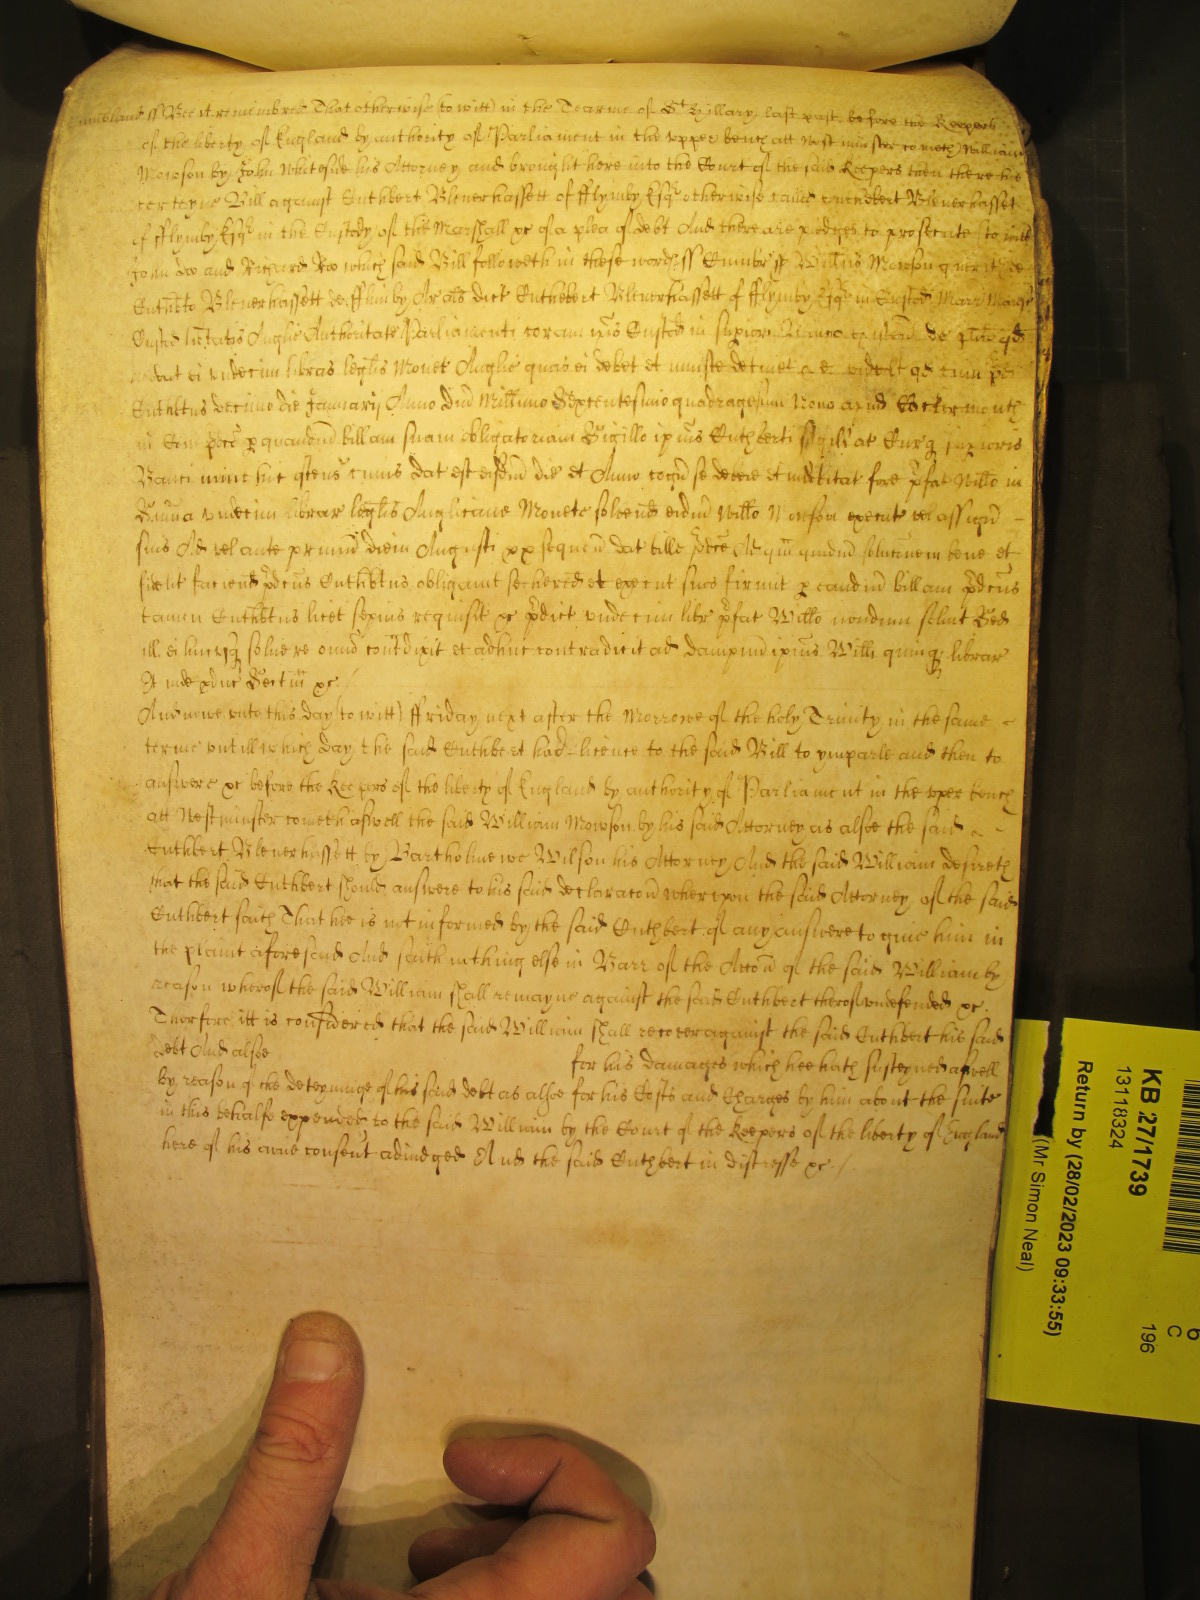 ss Bee it remembred That otherwise (to witt) in the Tearme of St Hillary last past before the Keepers
of the liberty of England by authority of Parliament in the vpper bench att Westminster cometh William
Mowson by John Whiteside his Attorney and brought here into the Court of the said Keepers then there his
certeyne Bill against Cuthbert Blenerhassett of fflymby Esqr otherwise called Cuthbert Blenerhasset
of fflymby Esqr in the Custody of the Marshall &c of a plea of debt And there are pledges to prosecute to witt
John Doo and Richard Roo which said Bill followeth in these words ss Cumbr ss Willus Mowson querit de
Cuthbto Blenerhassett de fflimby Ar als dict Cuthebert Blenerhassett of fflymby Esqr in Custod Marr
Custod libtatis Anglie Authoritate Parliamenti coram ipis Custod in supiori Banco de plito qd
reddat ei vndecim libras legalis Monet Anglie quas ei debet et iniuste detinet p eo videlt qd cum pdcus
Cuthbtus decimo die Januarij Anno Dni Millimo Sexcentesimo quadragesimo Nono apud Cockermouth
in Com pdco p quandam billam suam obligatoriam Sigillo ipius Cuthberti sigillat Cur superioris
Banci nunc hic ostens cuius dat est eisdem die et Anno cogn se debere et indebitat fore pfat Willo in
Summa vndecim librar legalis Anglicane Monete solvend eidm Willo Mowson execut vel assign
suis Ad vel ante primum diem Augusti px sequen dat bille pdce Ad quam quidem solucionem bene et
fidelit faciend pdcus Cuthbtus obligavit se hered et execut suos firmit p eandem billam pdcus
tamen Cuthbtus licet sepius requisit &c pdict vndecim libr pfat Willo nondum solvit Sed
ill ei hucusq solvere omino contradixit et adhuc contradicit ad dampnum ipius Willi quinq librar
Et inde pduc Sectam &c
And nowe vnto this day (to witt) ffriday next after the Morrowe of the holy Trinity in the same
terme vntill which day the said Cuthbert had licence to the said Bill to ymparle and then to
answere &c before the Keepers of the liberty of England by authority of Parliament in the vper bench
att Westminster cometh aswell the said William Mowson by his said Attorney as alsoe the said
Cuthbert Blenerhassett by Bartholmewe Wilson his Attorney And the said William desireth
that the said Cuthbert should answere to his said declaracon wherevpon the said Attorney of the said
Cuthbert saith That hee is not informed by the said Cuthbert of any answere to give him in
the plaint aforesaid And saith nothing else in Barr of the Accon of the said William by
reason wherof the said William shall remayne against the said Cuthbert therof vndefended &c
Therfore itt is considered that the said William shall recover against the said Cuthbert his said
debt And alsoe for his damages which hee hath susteyned aswell
by reason of the deteyninge of his said debt as alsoe for his Costs and Charges by him about the suite
in this behalfe expended to the said William by the Court of the Keepers of the liberty of England
here of his owne consent adiudged And the said Cuthbert in distresse &c
KB 27/1739
13118324
Return by (28/02/2023 09:33:55)
(Mr Simon Neal)
6
C
196